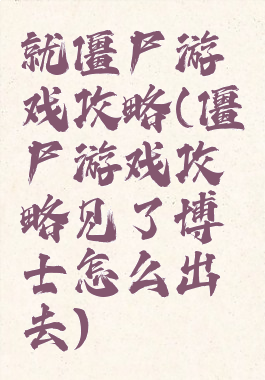 就僵尸游
戏攻略(僵
尸游戏攻
略见了博
士怎么出
去)